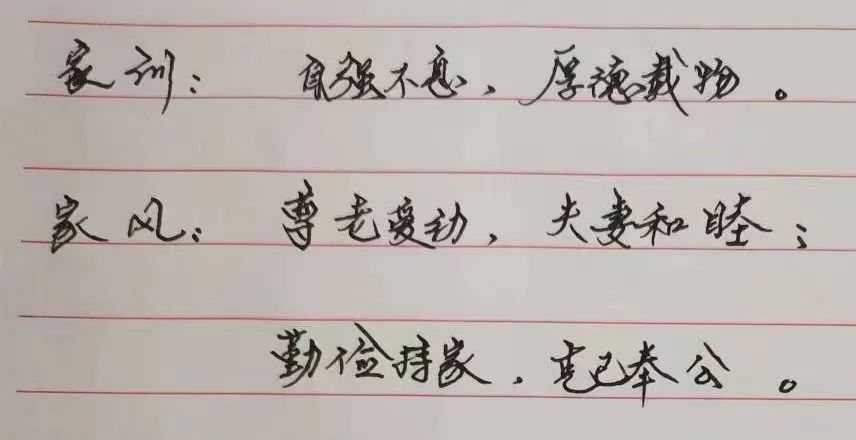 家训：自强不息，厚德载物。
家风：尊老爱幼，夫妻和睦；
勤俭持家，克己奉公。